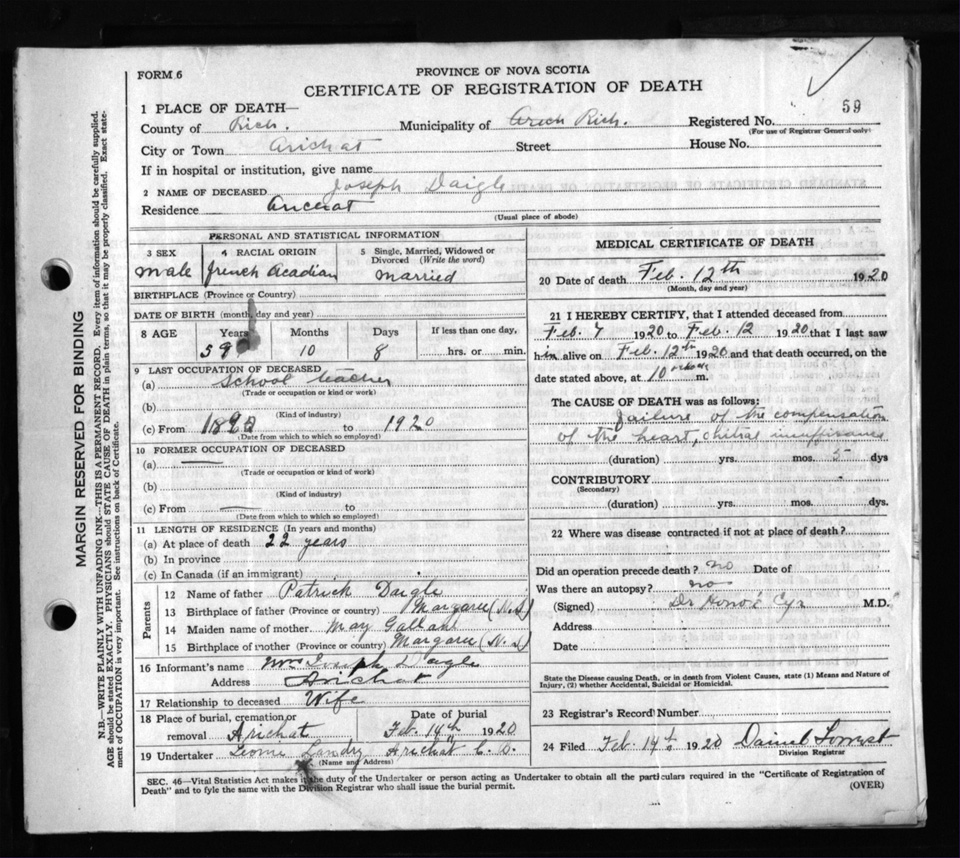 FORM 6
PROVINCE OF NOVA SCOTIA
CERTIFICATE OF REGISTRATION OF DEATH
59
1 PLACE OF DEATH—
County of Rich. Municipality of Rich. Registered No.
(For use of Registrar General only)
City or Town Arichat Street House No.
If in hospital or institution, give name
2 NAME OF DECEASED Joseph Daigle
Residence Arichat
(Usual place of abode)
MARGIN RESERVED FOR BINDING
N.B.—WRITE PLAINLY WITH UNFADING INK—THIS IS A PERMANENT RECORD. Every item of information should be carefully supplied.
AGE should be stated EXACTLY. PHYSICIANS should STATE CAUSE OF DEATH in plain terms, so that it may be properly classified. Exact state-
ment of OCCUPATION is very important. See instructions on back of Certificate.
PERSONAL AND STATISTICAL INFORMATION
3 SEX 4 RACIAL ORIGIN 5 Single, Married, Widowed or
Divorced (Write the word)
Male French Acadian Married
BIRTHPLACE (Province or Country)
DATE OF BIRTH (month, day and year)
8 AGE Years Months Days If less than one day,
59 10 8 hrs. or min.
9 LAST OCCUPATION OF DECEASED
(a) School teacher
(Trade or occupation or kind or work)
(b)
(Kind of industry)
(c) From to 1920
(Date from which to which so employed)
10 FORMER OCCUPATION OF DECEASED
(a) —
(Trade or occupation or kind of work)
(b)
(Kind of industry)
(c) From — to
(Date from which to which so employed)
11 LENGTH OF RESIDENCE (In years and months)
(a) At place of death 22 years
(b) In province
(c) In Canada (if an immigrant)
Parents
12 Name of father Patrick Daigle
13 Birthplace of father (Province or country) Margaree (N.S)
14 Maiden name of mother May
15 Birthplace of mother (Province or country) Margaree (N.S)
16 Informant's name Mrs Joseph Daigle
Address Arichat
17 Relationship to deceased Wife
18 Place of burial, cremation or Date of burial
removal Arichat Feb. 14th 1920
19 Undertaker Landry Arichat
(Name and Address)
MEDICAL CERTIFICATE OF DEATH
20 Date of death Feb. 12th 1920
(Month, day and year)
21 I HEREBY CERTIFY, that I attended deceased from
Feb. 7 1920 to Feb. 12 1920 that I last saw
him alive on Feb. 12th 1920 and that death occurred, on the
date stated above, at 10 m.
The CAUSE OF DEATH was as follows:
Failure of the compensation
of the heart,
(duration) yrs. mos. 5 dys
CONTRIBUTORY
(Secondary)
(duration) yrs. mos. dys.
22 Where was disease contracted if not at place of death?
Did an operation precede death? no Date of
Was there an autopsy? no
(Signed) Dr Cyr M.D.
Address
Date
State the Disease causing Death, or in death from Violent Causes, state (1) Means and Nature of
Injury, (2) whether Accidental, Suicidal or Homicidal.
23 Registrar's Record Number
24 Filed Feb. 14th 1920
Division Registrar
SEC. 46—Vital Statistics Act makes it the duty of the Undertaker or person acting as Undertaker to obtain all the particulars required in the "Certificate of Registration of
Death" and to fyle the same with the Division Registrar who shall issue the burial permit.
(OVER)